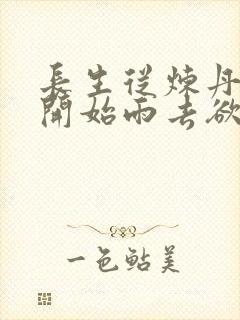 長生從煉丹
開始雨去欲
一色鲇美